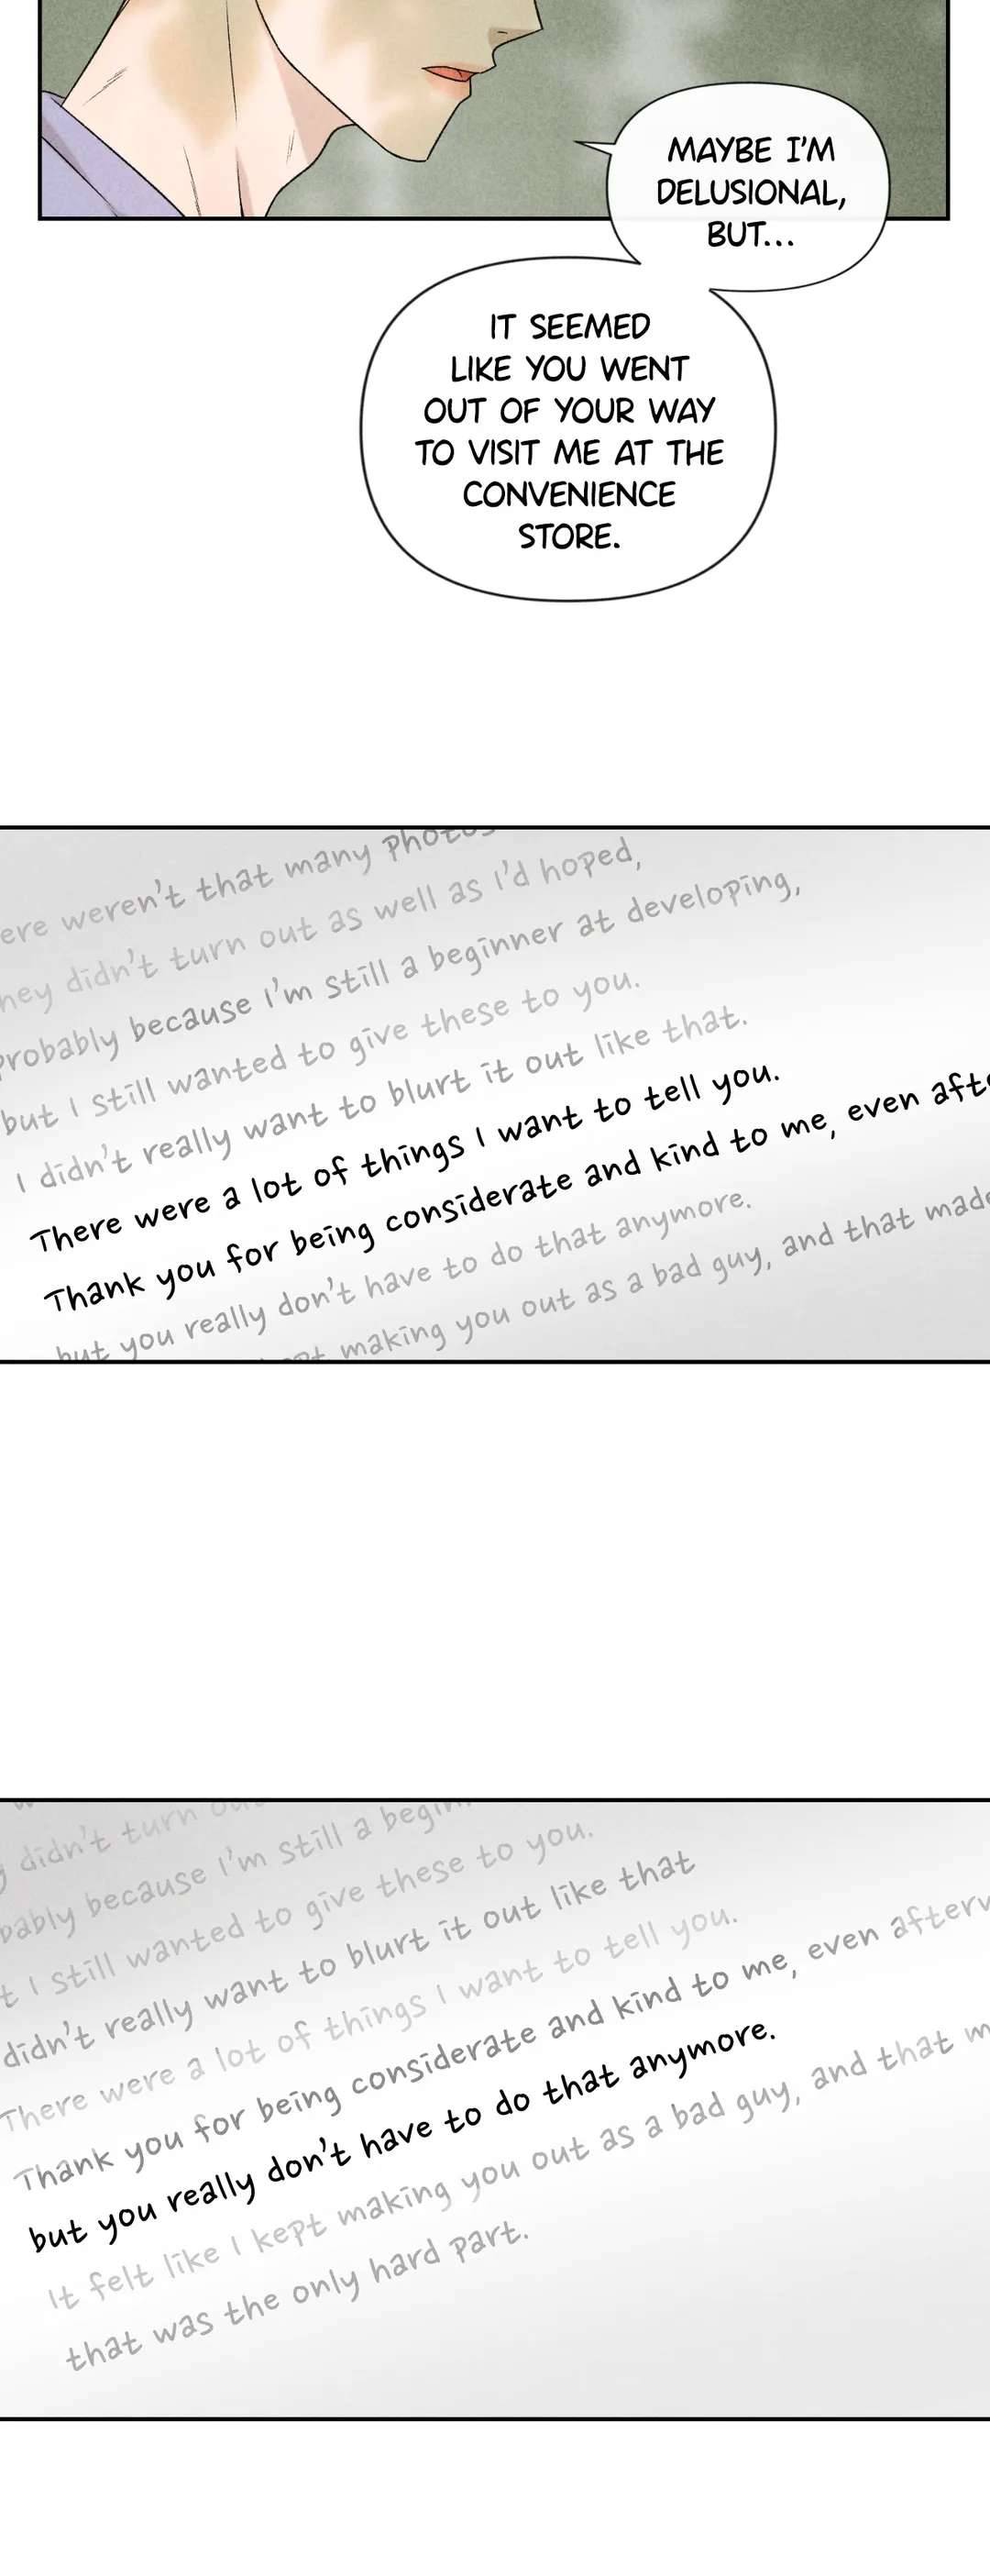 MAYBE I'M
DELUSIONAL,
BUT...
IT SEEMED
LIKE YOU WENT
OUT OF YOUR WAY
TO VISIT ME AT THE
CONVENIENCE
STORE.
weren't that many photos
didn't turn out as well as I'd hoped,
probably because I'm still a beginner at developing,
but I still wanted to give these to you.
I didn't really want to blurt it out like that.
There were a lot of things I want to tell you.
Thank you for being considerate and kind to me, even
but you really don't have to do that anymore.
making you out as a bad guy, and that made
didn't turn
because I'm still a
I still wanted to give these to you.
didn't really want to blurt it out like that
There were a lot of things I want to tell you.
Thank you for being considerate and kind to me, even
but you really don't have to do that anymore.
It felt like I kept making you out as a bad guy, and that
that was the only hard part.